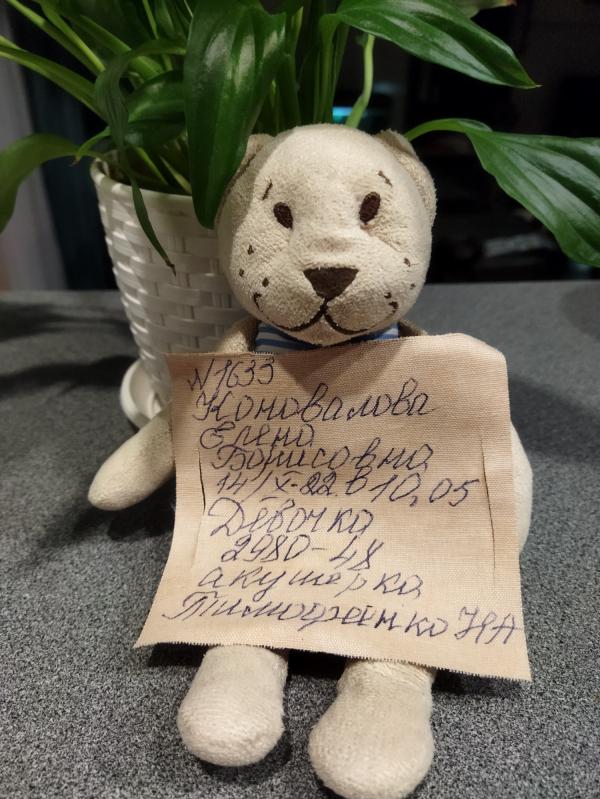 N 1633
Коновалова
Елена
Борисовна
14/X-22 в 10,05
Девочка
2980-48
акушерка
Тимофеенко НА